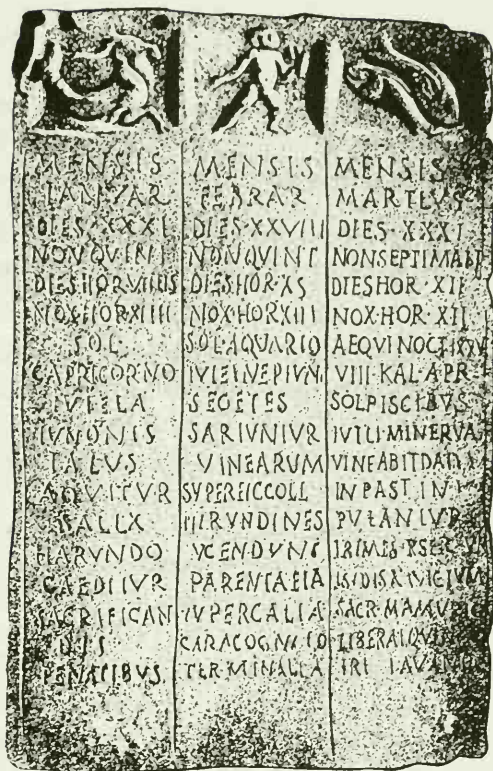 MENSIS
IANVAR
DIES·XXXI
NON QVINT
DIES HOR VIIIIS
NOX·HOR XIIII
SOL
CAPRICORNO
TVTELA
IVNONIS
TALVS
AQVITVR
SALIX
HARVNDO
CAEDITVR
SACRIFICAN
DIS
PENATIBVS
MENSIS
FEBRAR
DIES·XXVIII
NON QVINT
DIES HOR·XS
NOX·HOR XIII
SOL AQVARIO
NEPTVN
SEGETES
SARIVNTVR
VINEARVM
SVPERFIC COLL
HIRVNDINES
PARENTALIA
LVPERCALIA
CARA COGNATIO
TERMINALIA
MENSIS
MARTIVS
DIES·XXXI
NON SEPTIMAN
DIES HOR·XII
NOX·HOR·XII
AEQVINOCT
VIII·KAL·APR
SOL PISCIBVS
TVTEL·MINERVAE
VINEAE
IN PASTIN
PVTANTVR
SACR·MAMVRIO
LIBERAL QVIN